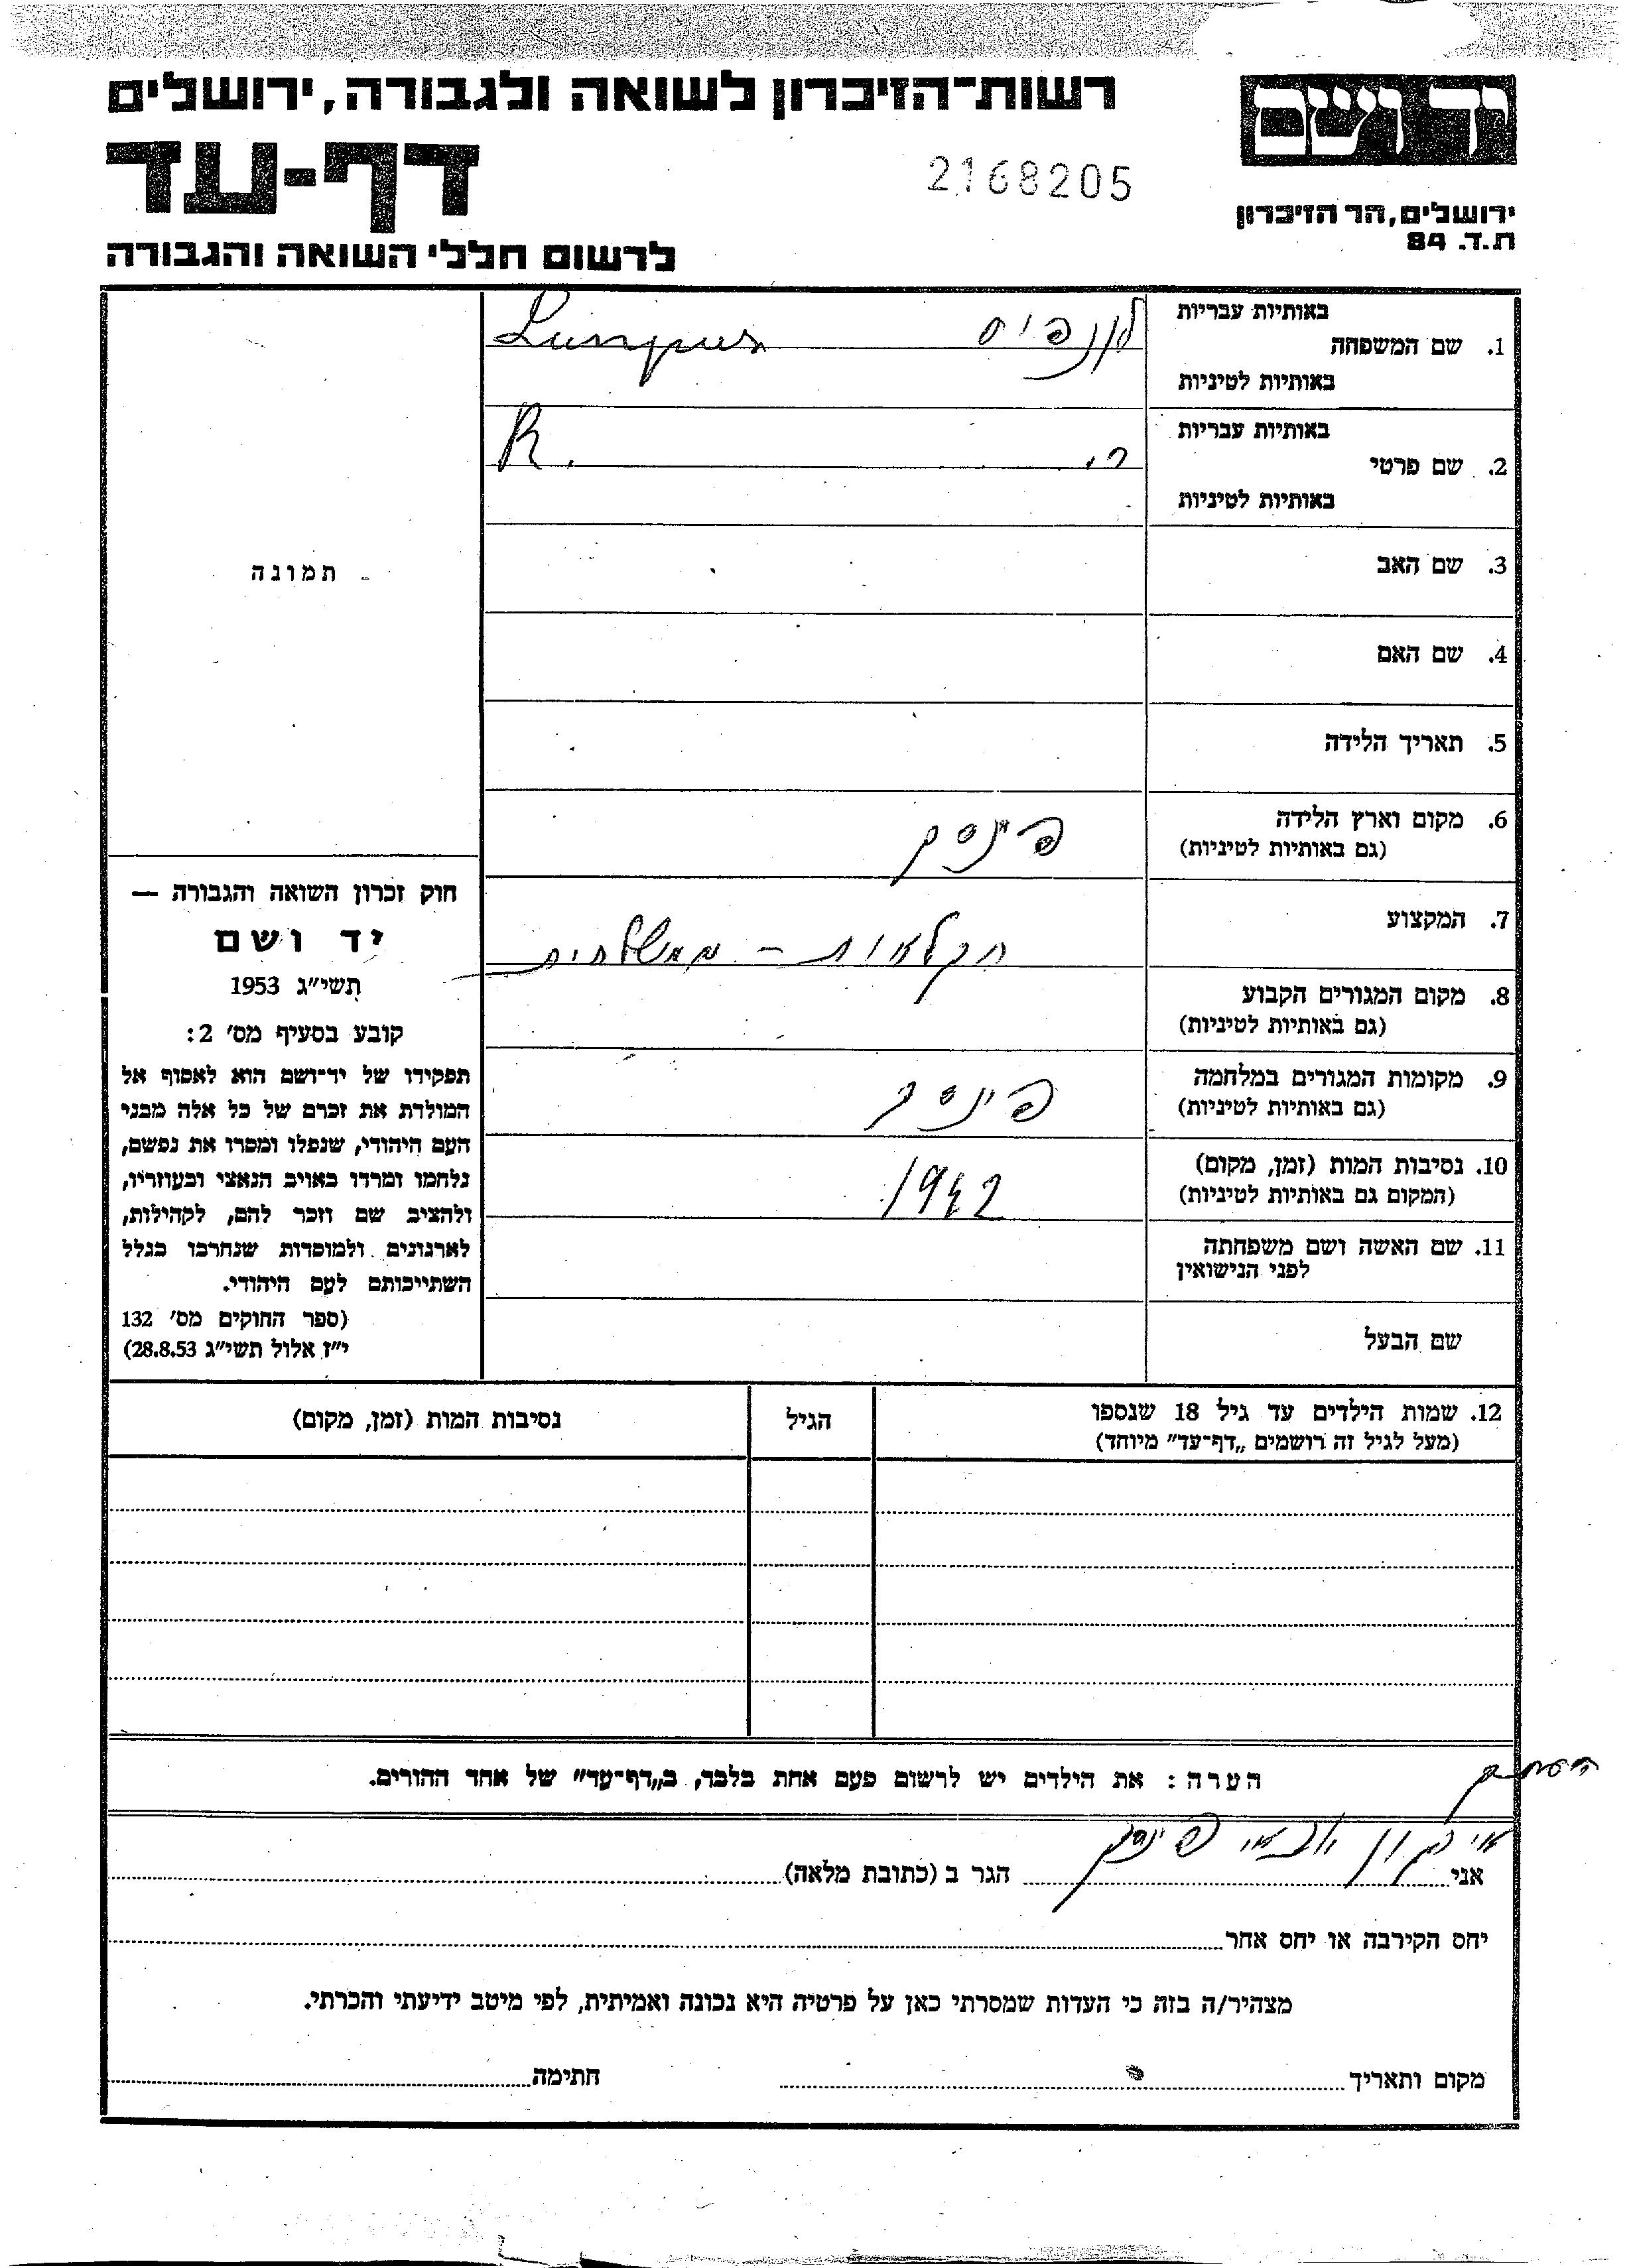 רשות־הזיכרון לשואה ולגבורה, ירושלים
יד ושם
דף-עד
2168205
ירושלים, הר הזיכרון
ת.ד. 84
לרשום חללי השואה והגבורה
באותיות עבריות
1. שם המשפחה
לונפיס Lunpus
באותיות לטיניות
באותיות עבריות
2. שם פרטי
ר. R.
באותיות לטיניות
3. שם האב
4. שם האם
5. תאריך הלידה
6. מקום וארץ הלידה
(גם באותיות לטיניות)
פינסק
7. המקצוע
חקלאות -
8. מקום המגורים הקבוע
(גם באותיות לטיניות)
9. מקומות המגורים במלחמה
(גם באותיות לטיניות)
פינסק
10. נסיבות המות (זמן, מקום)
(המקום גם באותיות לטיניות)
1942
11. שם האשה ושם משפחתה
לפני הנישואין
שם הבעל
תמונה
חוק זכרון השואה והגבורה —
יד ושם
תשי״ג 1953
קובע בסעיף מס׳ 2:
תפקידו של יד־ושם הוא לאסוף אל
המולדת את זכרם של כל אלה מבני
העם היהודי, שנפלו ומסרו את נפשם,
נלחמו ומרדו באויב הנאצי ובעוזריו,
ולהציב שם וזכר להם, לקהילות,
לארגונים ולמוסדות שנחרבו בגלל
השתייכותם לעם היהודי.
(ספר החוקים מס׳ 132
י״ז אלול תשי״ג 28.8.53)
12. שמות הילדים עד גיל 18 שנספו
(מעל לגיל זה רושמים „דף־עד״ מיוחד)
הגיל
נסיבות המות (זמן, מקום)
הערה: את הילדים יש לרשום פעם אחת בלבד, ב„דף־עד״ של אחד ההורים.
ארגון יוצאי פינסק
אני הגר ב (כתובת מלאה)
יחס הקירבה או יחס אחר
מצהיר/ה בזה כי העדות שמסרתי כאן על פרטיה היא נכונה ואמיתית, לפי מיטב ידיעתי והכרתי.
מקום ותאריך חתימה